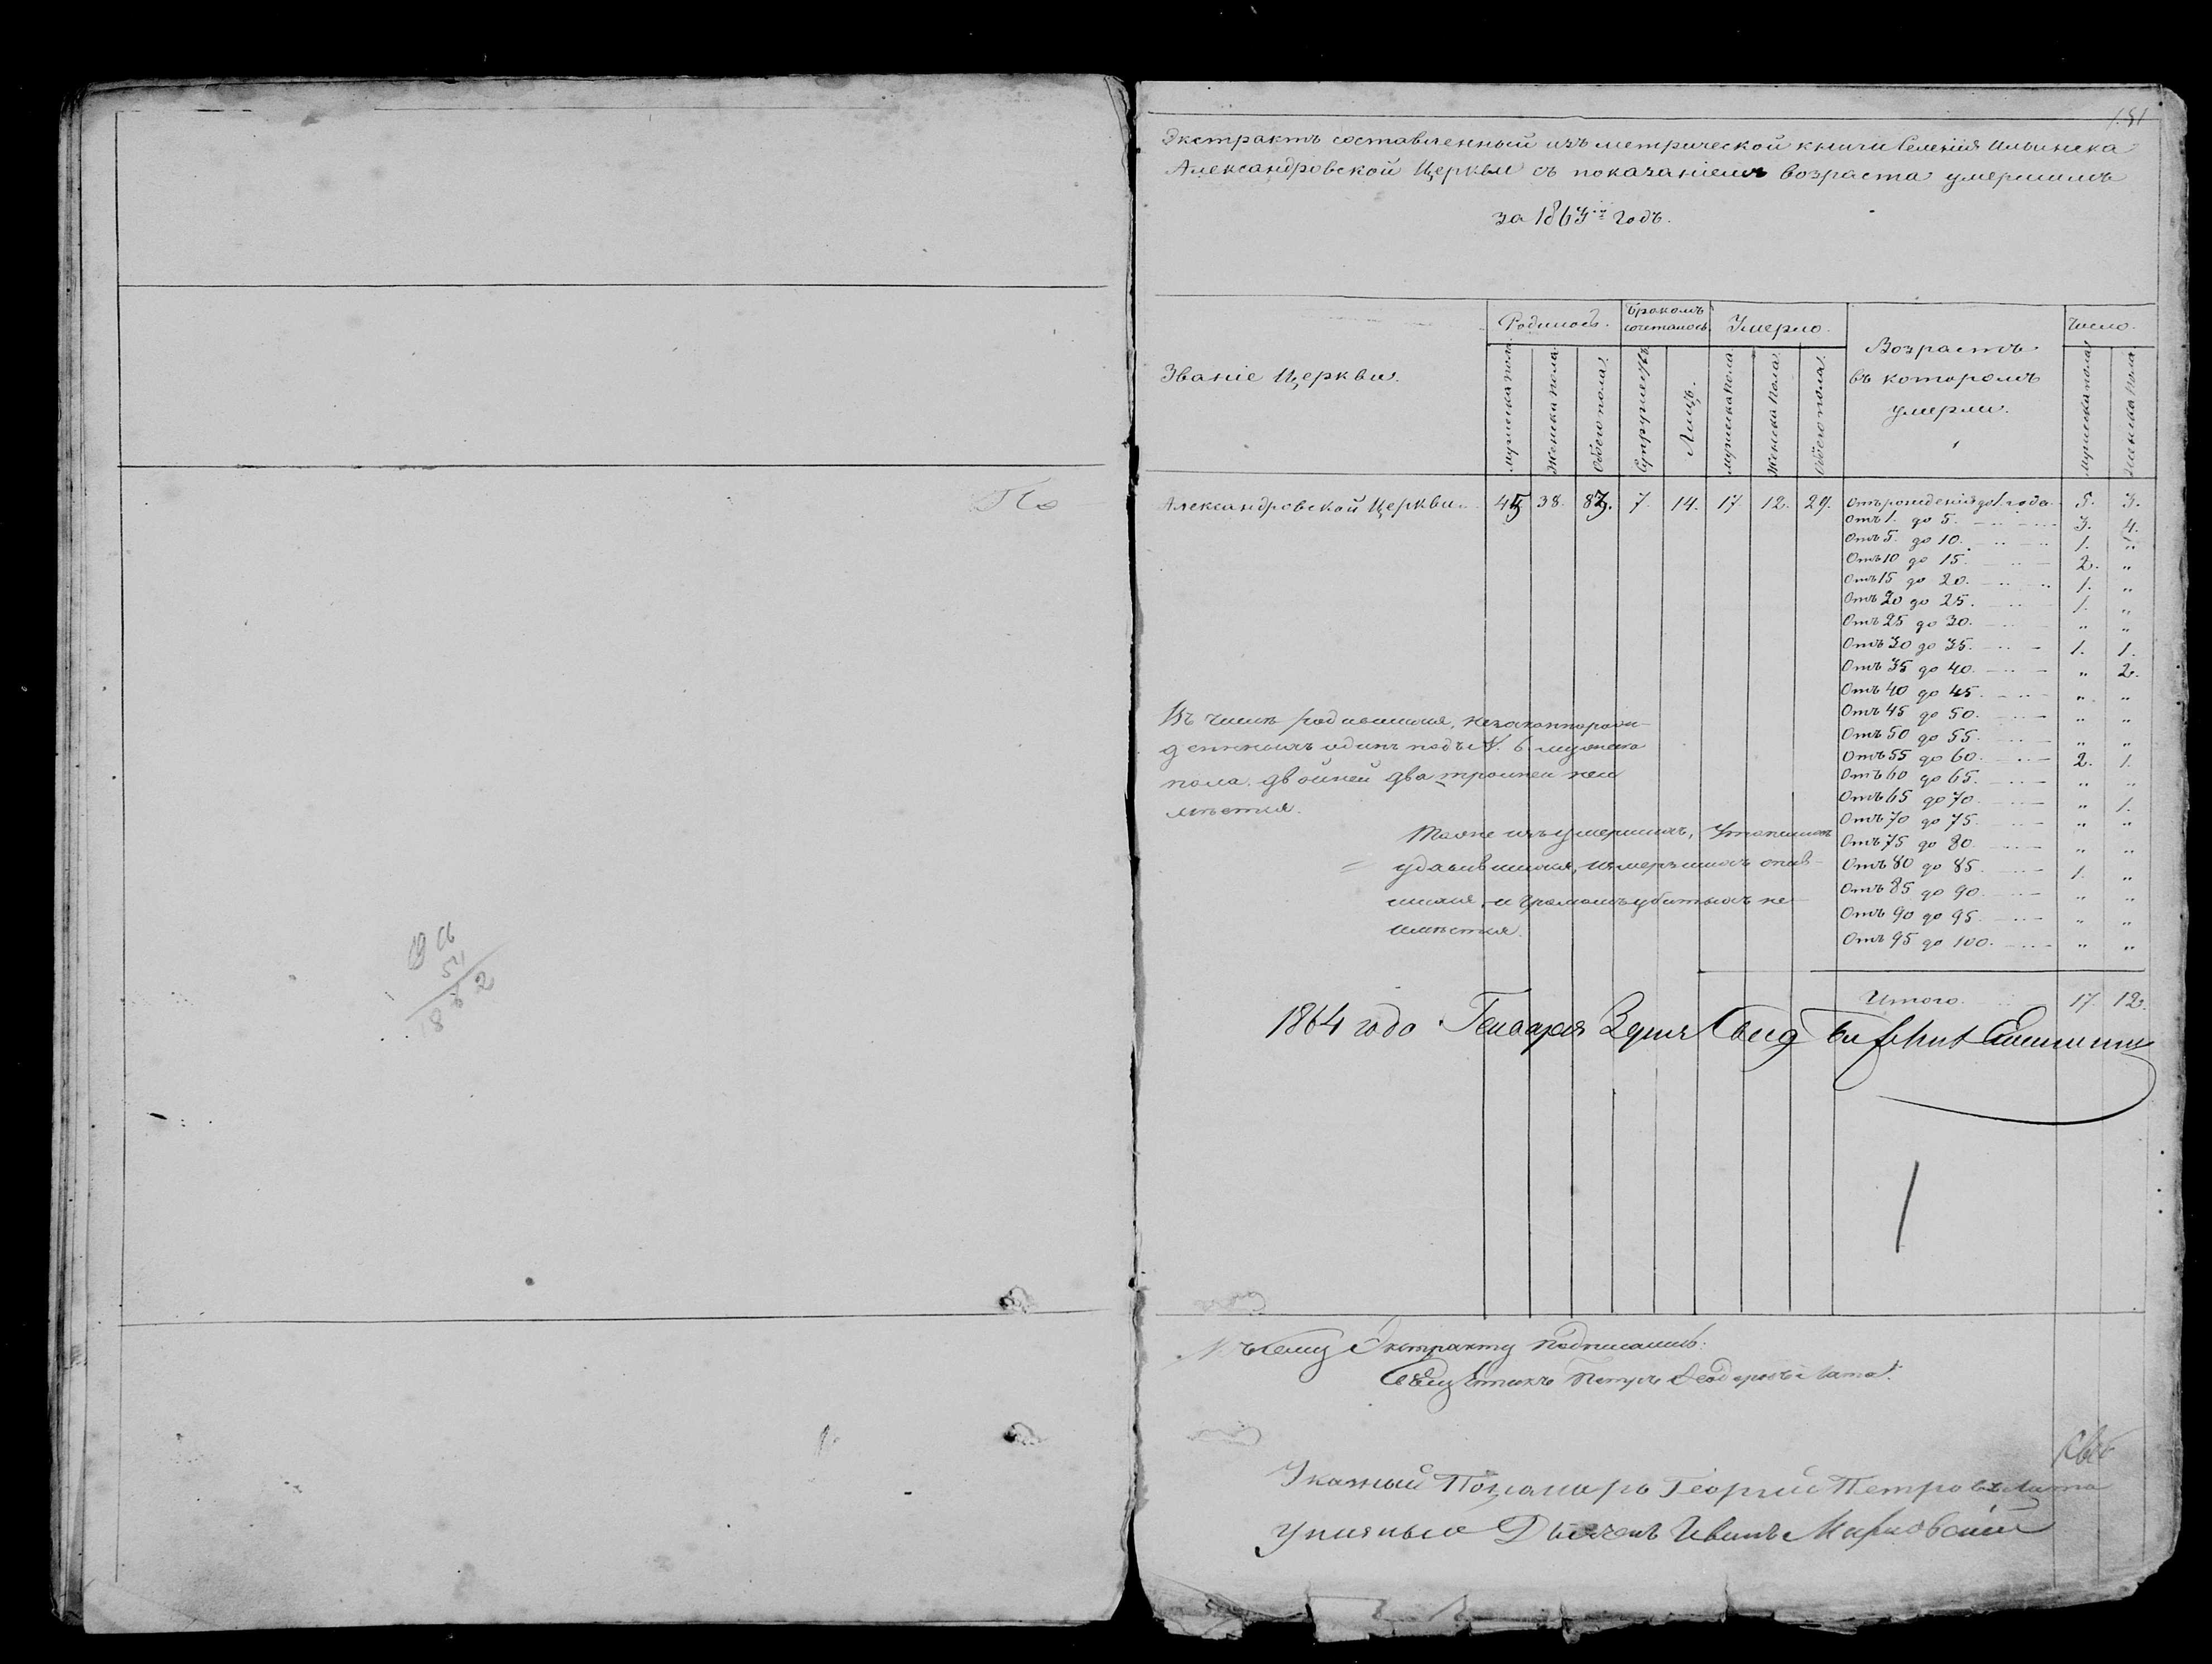 По
54
1862
181
Экстрактъ составленный изъ метрической книги Селенія Ильинска
Александровской Церкви съ показаніемъ возраста умершимъ
за 1863й годъ.
Званіе Церкви.
Родилось.
Бракомъ сочеталось
Умерло.
Возрастъ
въ которомъ
умерли.
Число.
мужеска пола
Женска пола
Обоего пола
Супружествъ
Лицъ.
мужеска пола
Женска пола
Обоего пола
мужеска пола
Женска пола
Александровской Церкви. 45 38. 83. 7. 14. 17. 12. 29.
Отъ рожденія до 1. года. 5. 3.
Отъ 1. до 5. 3. 4.
Отъ 5. до 10. 1. "
Отъ 10 до 15. 2. "
Отъ 15 до 20. 1. "
Отъ 20 до 25. 1. "
Отъ 25 до 30. " "
Отъ 30 до 35. 1. 1.
Отъ 35 до 40. " 2.
Отъ 40 до 45. " "
Отъ 45 до 50. " "
Отъ 50 до 55. " "
Отъ 55 до 60. 2. 1.
Отъ 60 до 65. " "
Отъ 65 до 70. " 1.
Отъ 70 до 75. " "
Отъ 75 до 80. " "
Отъ 80 до 85. 1. "
Отъ 85 до 90. " "
Отъ 90 до 95. " "
Отъ 95 до 100. " "
Итого. 17. 12.
Въ числѣ родившихся, незаконнорож-
денныхъ одинъ подъ №. 6 мужеска
пола. двойней два тройней неи
мѣется.
Также изъ умершихъ, Утопшихъ
удавившихся, измерзшихъ опив-
шихся, и громомъ убитыхъ не-
имѣется.
1864 года Генваря 2 дня Свид
Къ Сему Экстракту подписались:
Священникъ Петръ Феодоровъ Лата
Указный Пономарь Георгій Петровъ Лата
Дьячекъ Иванъ